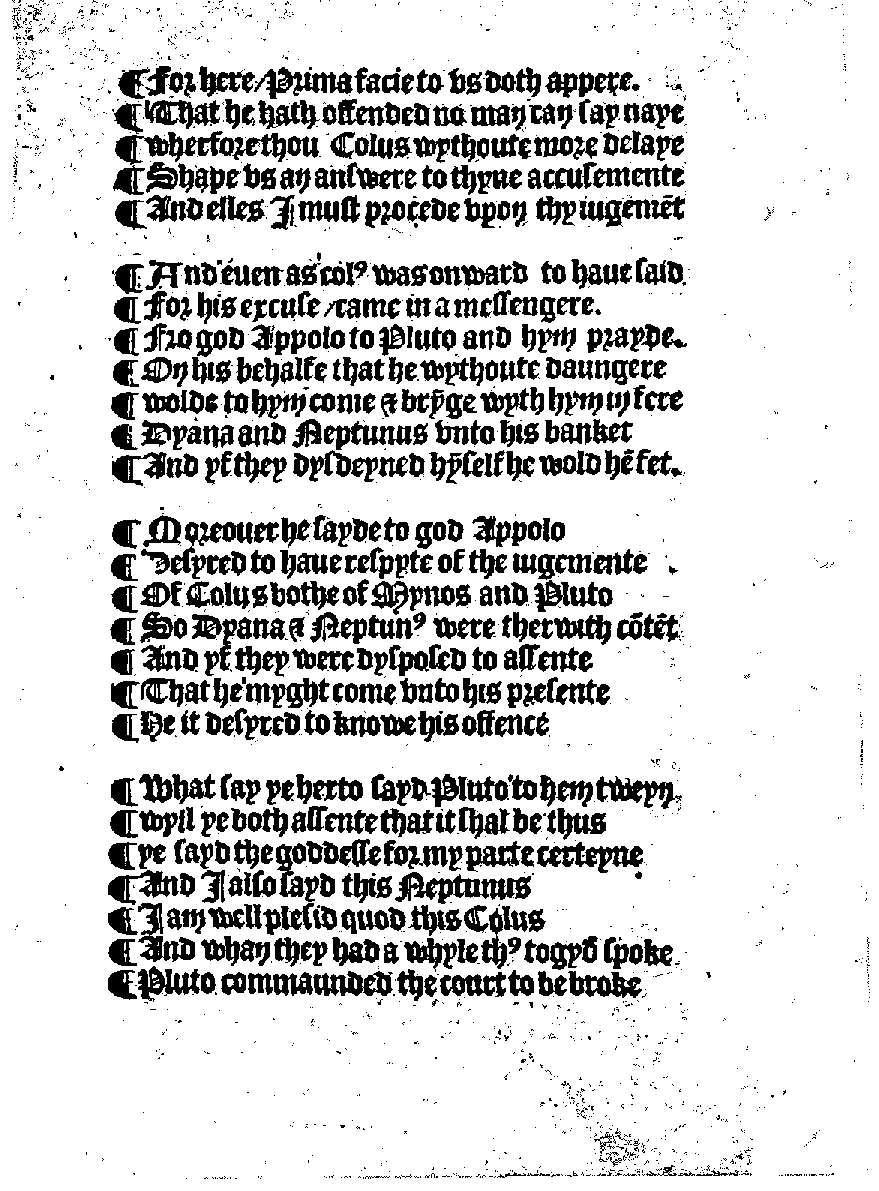 ¶ For here / Prima facie to vs doth appere.
¶ That he hath offended no may can say naye
¶ wherfore thou Colus wythoute more delaye
¶ Shape vs an answere to thyne accusemente
¶ And elles I must procede vpon thy iugemēt

¶ And euen as colꝰ was onward to haue said
¶ For his excuse / came in a messengere.
¶ Fro god Appolo to Pluto and hym prayde.
¶ On his behalfe that he wythoute daungere
¶ wolde to hym come & brȳge wyth hym in fere
¶ Dyana and Neptunus vnto his banket
¶ And yf they dysdeyned hȳself he wold hē fet.

¶ Moreouer he sayde to god Appolo
¶ Desyred to haue respyte of the iugemente
¶ Of Colus bothe of Mynos and Pluto
¶ So Dyana & Neptunꝰ were therwith cōtēt
¶ And yf they were dysposed to assente
¶ That he myght come vnto his presente
¶ He it desyred to knowe his offence

¶ What say ye herto sayd Pluto to hem tweyn.
¶ wyll ye both assente that it shal be thus
¶ ye sayd the goddesse for my parte certeyne
¶ And I also sayd this Neptunus
¶ I am well plesid quod this Colus
¶ And whan they had a whyle thꝰ togyd̄ spoke
¶ Pluto commaunded the court to be broke